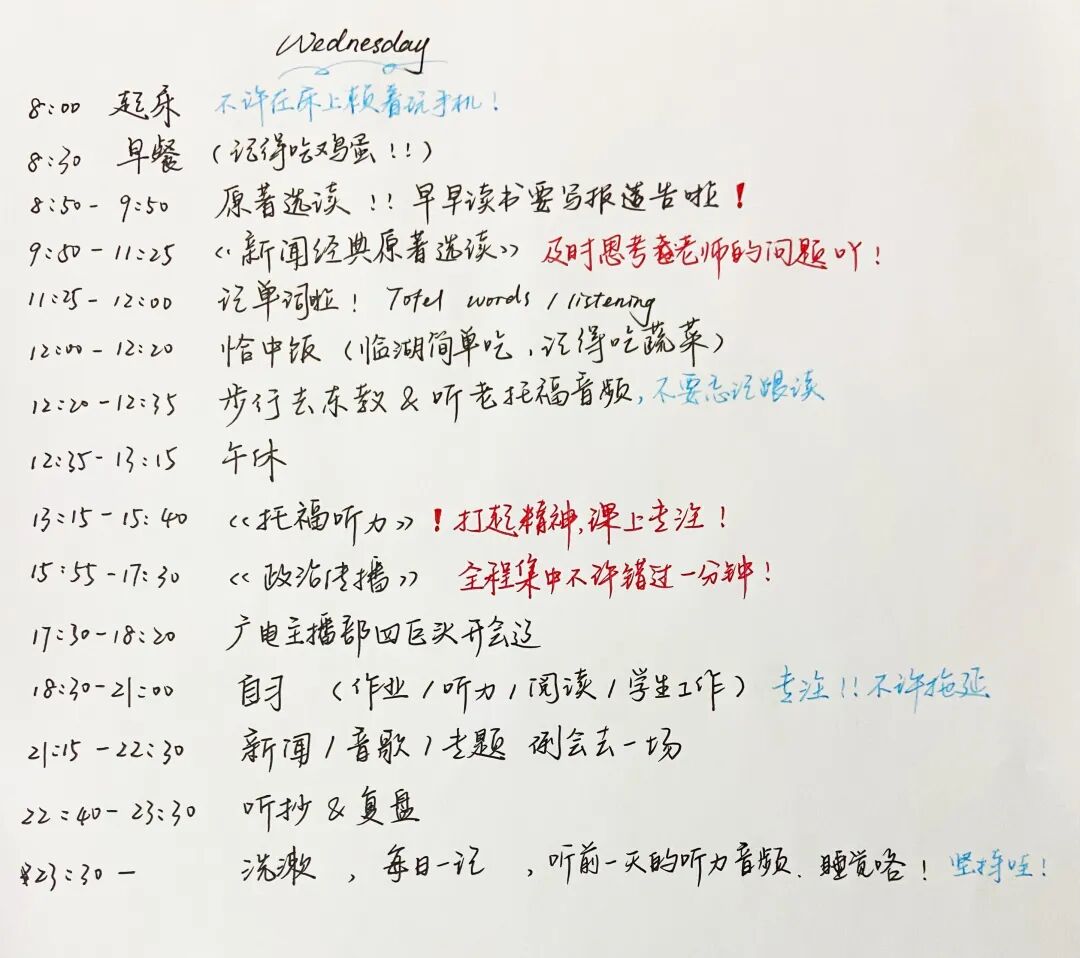 Wednesday
8:00 起床 不许在床上赖着玩手机！
8:30 早餐 （记得吃鸡蛋！！）
8:50 - 9:50 原著选读！！早早读书要写报告啦！
9:50 - 11:25 《新闻经典原著选读》 及时思考老师的问题吖！
11:25 - 12:00 记单词啦！Tofel words / listening
12:00 - 12:20 恰中饭（临湖简单吃，记得吃蔬菜）
12:20 - 12:35 步行去东教 & 听老托福音频，不要忘记跟读
12:35 - 13:15 午休
13:15 - 15:40 《托福听力》！打起精神，课上专注！
15:55 - 17:30 《政治传播》 全程集中不许错过一分钟！
17:30 - 18:20 广电主播部四巨头开会这
18:30 - 21:00 自习 （作业 / 听力 / 阅读 / 学生工作） 专注！！不许拖延
21:15 - 22:30 新闻 / 音歌 / 专题 例会去一场
22:40 - 23:30 听抄 & 复盘
23:30 - 洗漱，每日一记，听前一天的听力音频、睡觉咯！坚持哇！